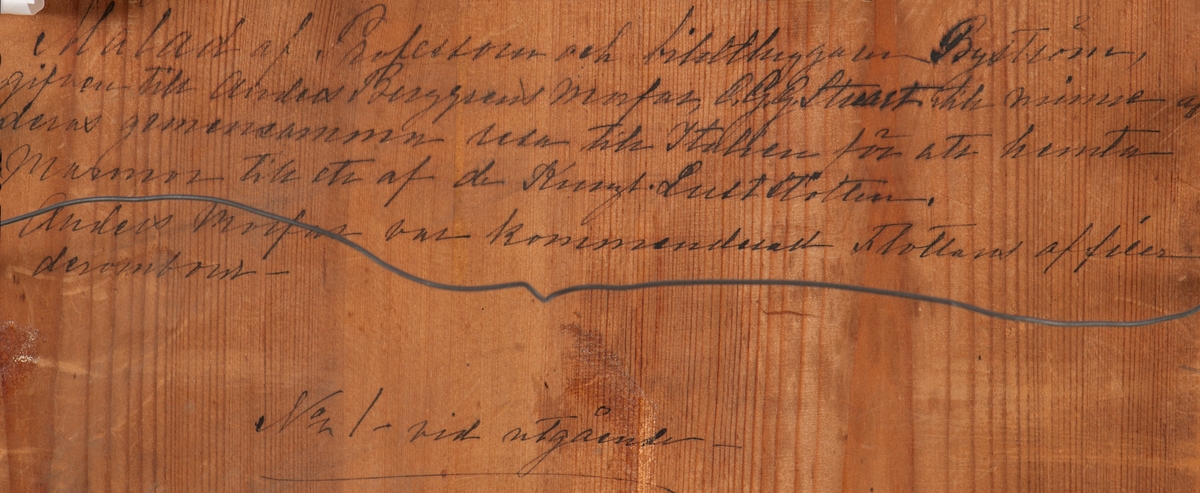 Målad af Professoren och bildthuggaren Byström,
gifven till Anders Berggrens Morfar, C.G.G. Stuart till minne af
deras gemensamma resa till Italien för att hemta
Marmor till ett af de Kungl. Lustslotten.
Anders Morfar var kommenderad Flottans officer
derombord –
No 1 – vid utgående –